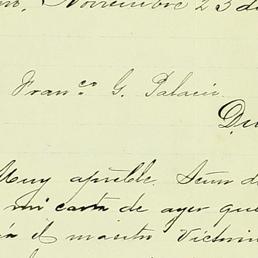 Noviembre 23 d
Fran.co G. Palacio.
Du
Muy apreble. Señor d
mi carta de ayer que
el maestro Victorin